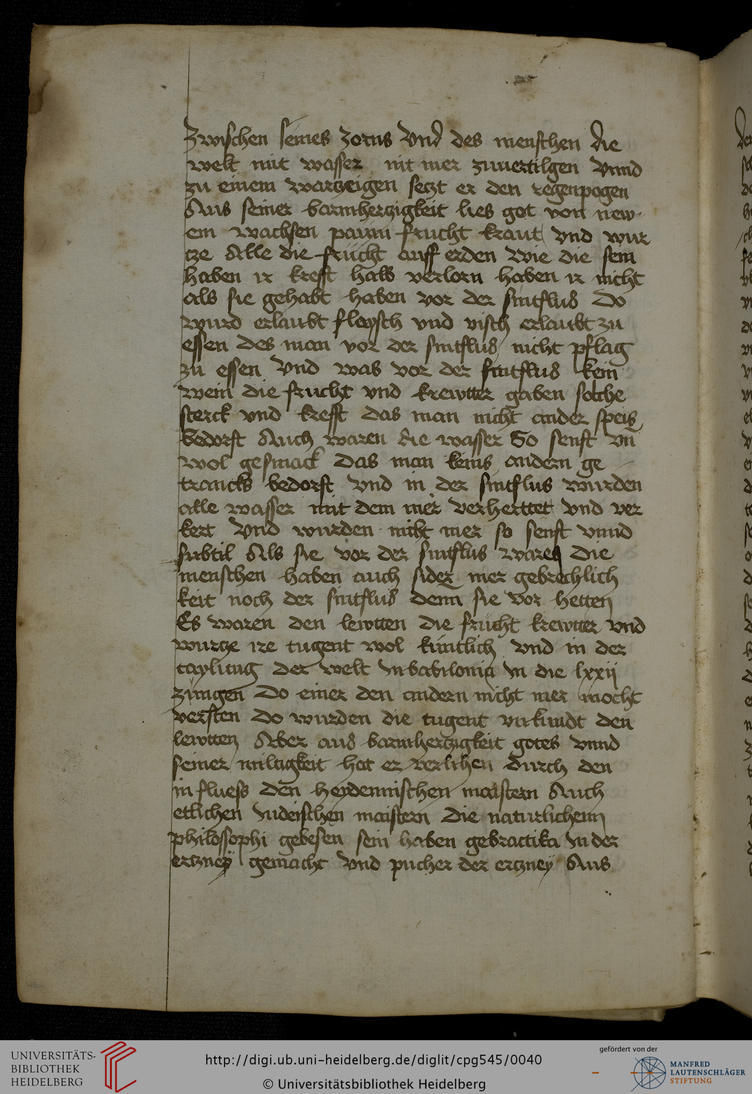 zwischen seines zorns Vnd des menschen die
welt mit wasser nit mer zuuertilgen Vnnd
zu einem warzeigen seczt er den regenpogen
Aus seiner barmherczigkeit lies got von new
em wachsen paum frucht kraut Vnd wur
cze Alle die frucht auff erden Wie die sein
haben ir krefft halb verlorn haben ir nicht
als sie gehabt haben vor der sintflus Do
wurd erlaubt fleysch vnd visch erlaubt zu
essen des man vor der sintflus nicht pflag
zu essen Vnd was vor der sintflus kein
wein die frucht vnd krewtter gaben solche
sterck vnd krefft das man nicht ander speis
bedorft Auch waren die wasser So senft vn
wol gesmack Das man keins andern ge
trancks bedorft Vnd in der sintflus wurden
alle wasser mit dem mer verherttet Vnd ver
kert Vnd wurden nicht mer so senft vnnd
subtil Als sie vor der sintflus waren Die
menschen haben auch sider mer gebrechlich
keit noch der sintflus denn sie vor hetten
Es waren den lewtten die frucht krewtter Vnd
wurcze ire tugent wol kuntlich Vnd in der
taylung der welt In babilonia In die lxxij
zungen Do einer den andern nicht mer mocht
versten Do wurden die tugent vnkundt den
lewtten Aber aus barmherczigkeit gotes vnnd
seiner miltigkeit hat er verlihen durch den
influess den heydennischen maistern Auch
ettlichen Indeischen maistern Die naturlichenn
philossophi gebesen sein haben gebractika In der
ercznej gemacht Vnd pucher der ercznej Aus
UNIVERSITÄTS-
BIBLIOTHEK
HEIDELBERG
http://digi.ub.uni-heidelberg.de/diglit/cpg545/0040
© Universitätsbibliothek Heidelberg
gefördert von der
MANFRED
LAUTENSCHLÄGER
STIFTUNG